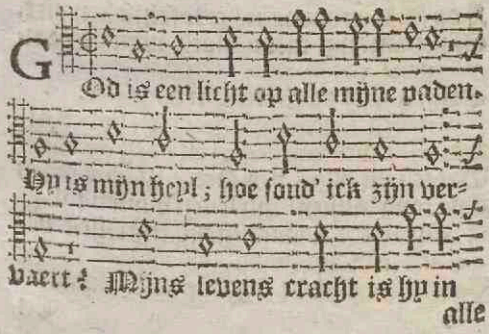 GOd is een licht op alle mijne paden.
Hy is mijn heyl; hoe soud' ick zijn ver-
vaert? Mijns levens cracht is hy in
alle